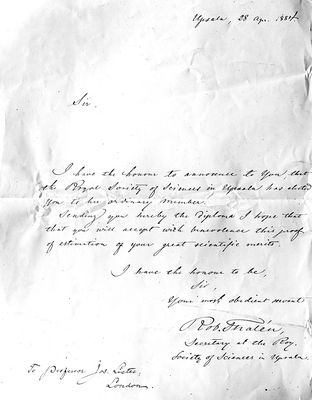 Upsala, 28 Apr. 1884
Sir.
I have the honour to announce to You, that
the Royal Society of Sciences in Upsala has elected
you to her ordinary member.
Sending you hereby the diploma I hope that
that you will accept with benevolence this proof
of estimation of your great scientific merits.
I have the honour to be,
Sir,
Your most obedient servant
Rob. Thalén,
Secretary at the Roy.
Society of Sciences in Upsala.
To Professor Jos. Lister,
London.